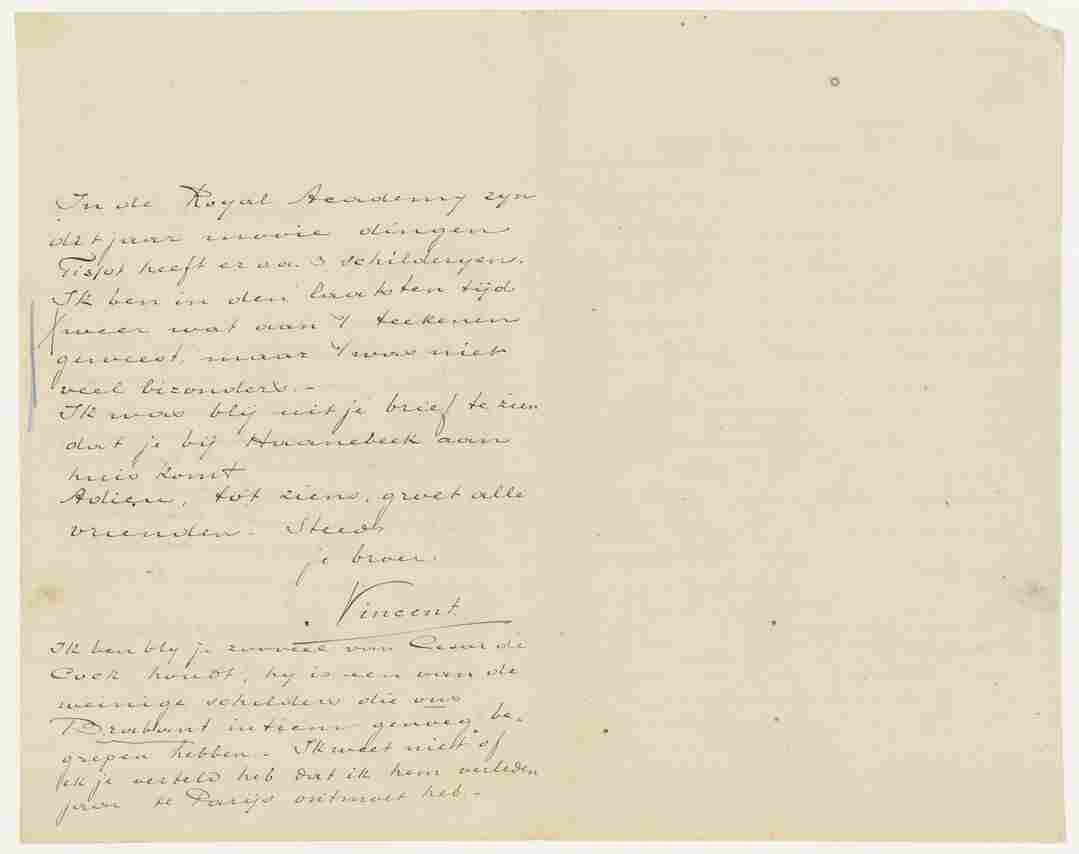 In de Royal Academy zyn
dit jaar mooie dingen
Tissot heeft er o.a. 3 schilderyen.
Ik ben in den laatsten tijd
weer wat aan 't teekenen
geweest, maar 't was niet
veel bizonders. -
Ik was blij uit je brief te zien
dat je bij Haanebeek aan
huis komt
Adieu, tot ziens, groet alle
vrienden. Steeds
je broer.
Vincent
Ik ben bly je zooveel van Cesar de
Cock houdt, hy is een van de
weinige schilders die ons
Brabant intiem genoeg be-
grepen hebben. Ik weet niet of
ik je verteld heb dat ik hem verleden
jaar te Parijs ontmoet heb. -